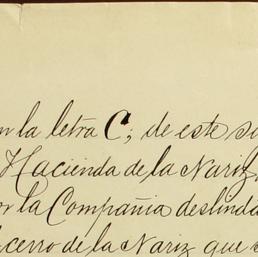 n la letra C; de este s
Hacienda de la Nariz,
or la Compañia deslinda
cerro de la Nariz que